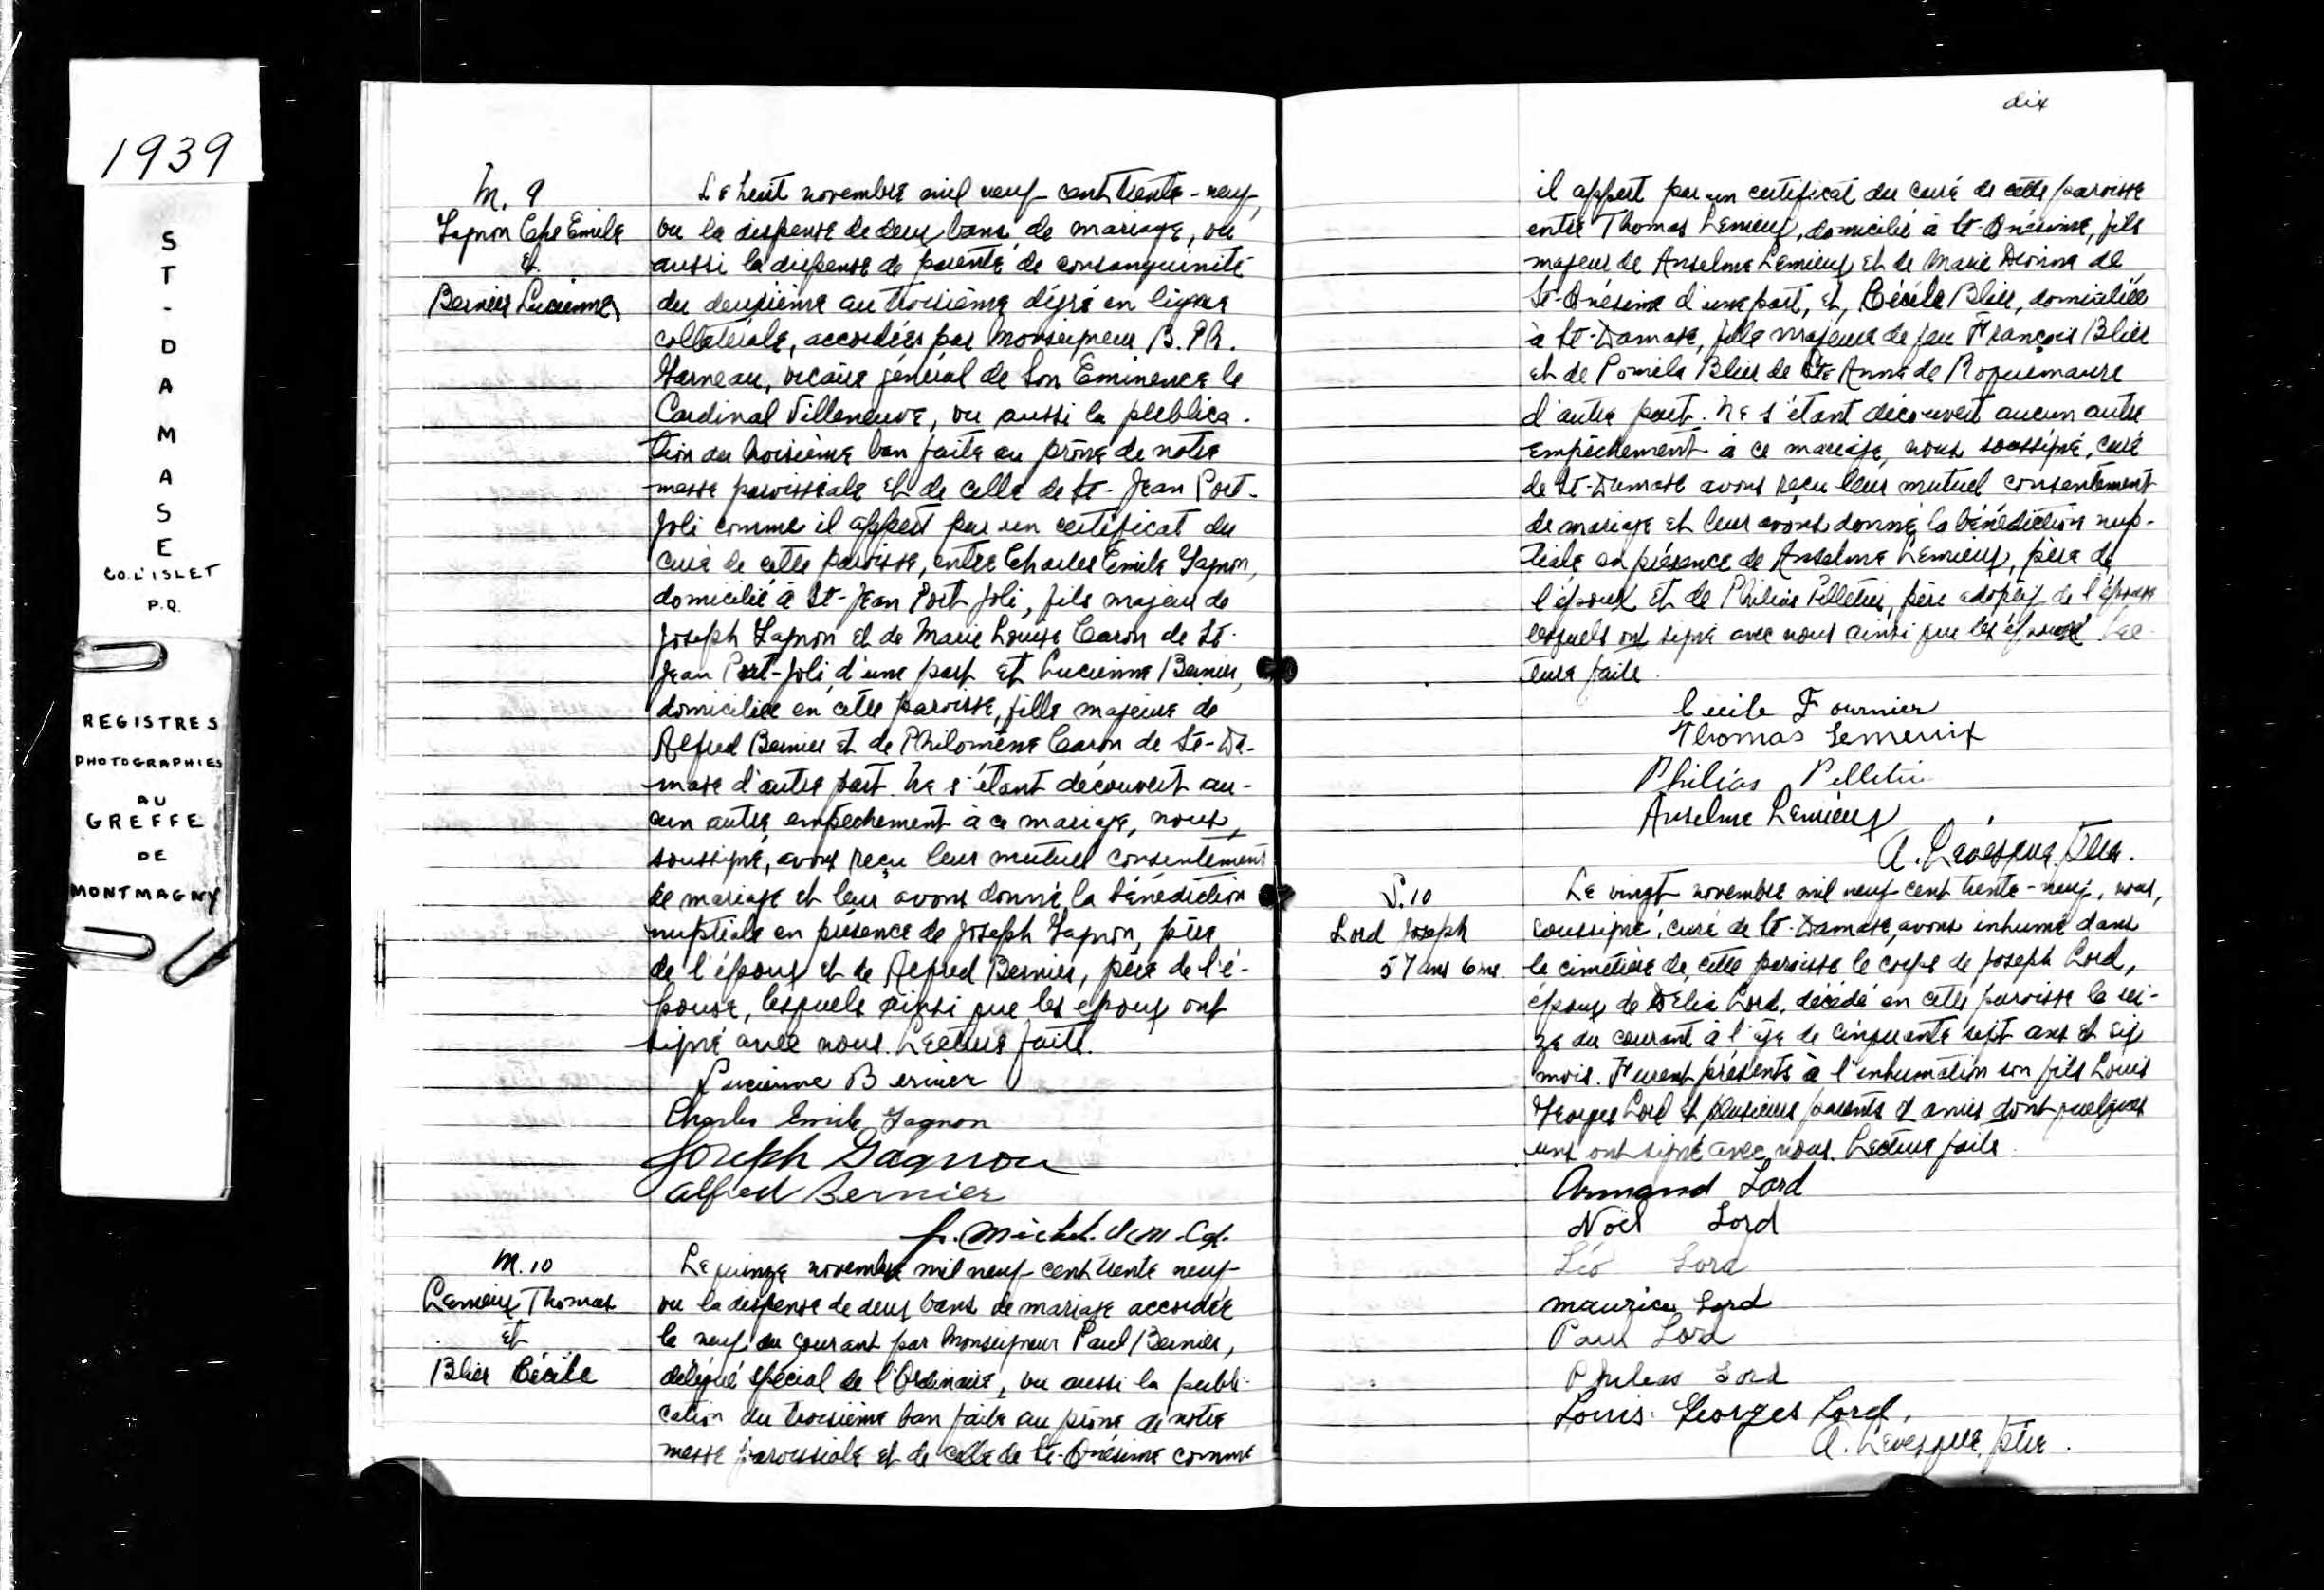 1939
ST-DAMASE
CO. L'ISLET
P.Q.
REGISTRES
PHOTOGRAPHIES
AU
GREFFE
DE
MONTMAGNY
M. 9
Gagnon Chs Emile
et
Bernier Lucienne
Le huit novembre mil neuf cent trente-neuf,
vu la dispense de deux bans de mariage, vu
aussi la dispense de parenté de consanguinité
du deuxième au troisième dégré en ligne
collatérale, accordées par Monseigneur B. Ph.
Garneau, vicaire général de Son Eminence le
Cardinal Villeneuve, vu aussi la publica-
tion du troisième ban faite au prône de notre
messe paroissiale et de celle de St-Jean Port-
Joli comme il appert par un certificat du
curé de cette paroisse, entre Charles Emile Gagnon,
domicilié à St-Jean Port Joli, fils majeur de
Joseph Gagnon et de Marie Louise Caron de St-
Jean Port-Joli, d'une part et Lucienne Bernier,
domiciliée en cette paroisse, fille majeure de
Alfred Bernier et de Philomène Caron de St-Da-
mase d'autre part. Ne s'étant découvert au-
cun autre empêchement à ce mariage, nous,
soussigné, avons reçu leur mutuel consentement
de mariage et leur avons donné la bénédiction
nuptiale en présence de Joseph Gagnon, père
de l'époux et de Alfred Bernier, père de l'é-
pouse, lesquels ainsi que les époux ont
signé avec nous. Lecture faite.
Lucienne Bernier
Charles Emile Gagnon
Joseph Gagnon
Alfred Bernier
M. 10
Lemieux Thomas
et
Blier Cécile
Le quinze novembre mil neuf cent trente neuf
vu la dispense de deux bans de mariage accordée
le neuf du courant par Monseigneur Paul Bernier,
délégué spécial de l'Ordinaire, vu aussi la publi-
cation du troisième ban faite au prône de notre
messe paroissiale et de celle de St-Onésime comme
dix
il appert par un certificat du curé de cette paroisse
entre Thomas Lemieux, domicilié à St-Onésime, fils
majeur de Anselme Lemieux et de Marie Dionne de
St-Onésime d'une part, et, Cécile Blier, domiciliée
à St-Damase, fille majeure de feu François Blier
et de Pomela Blier de Ste Anne de Roquemaure
d'autre part. Ne s'étant découvert aucun autre
empêchement à ce mariage, nous soussigné, curé
de St-Damase avons reçu leur mutuel consentement
de mariage et leur avons donné la bénédiction nup-
tiale en présence de Anselme Lemieux, père de
l'époux et de Philias Pelletier, père adoptif de l'épouse
lesquels ont signé avec nous ainsi que les époux Lec-
ture faite.
Cecile Fournier
Thomas Lemieux
Philias Pelletier
Anselme Lemieux
A. Lévesque, ptre.
S. 10
Lord Joseph
57 ans 6 ms.
Le vingt novembre mil neuf cent trente-neuf, nous,
soussigné, curé de St-Damase, avons inhumé dans
le cimetière de cette paroisse le corps de Joseph Lord,
époux de Délia Lord, décédé en cette paroisse le sei-
ze du courant à l'âge de cinquante sept ans et six
mois. Furent présents à l'inhumation son fils Louis
Georges Lord et plusieurs parents et amis dont quelques
uns ont signé avec nous. Lecture faite.
Armand Lord
Noël Lord
Léo Lord
Maurice Lord
Paul Lord
Phileas Lord
Louis-Georges Lord,
A. Lévesque, ptre.